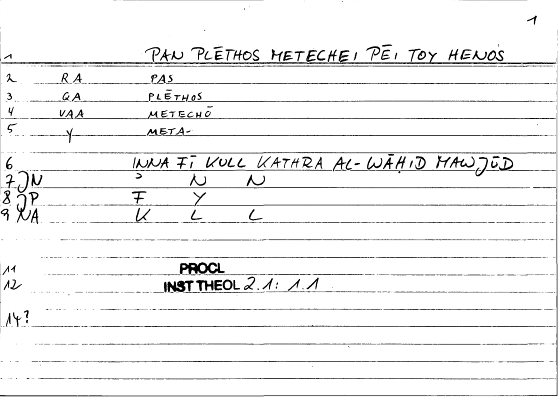 1
1 PAN PLĒTHOS METECHEI PĒI TOY HENÓS
2 RA PAS
3 QA PLĒTHOS
4 VAA METECHŌ
5 Y META-
6 INNA FĪ KULL KATHRA AL-WĀḤID MAWJŪD
7 JN ʾ N N
8 JP F Y
9 NA K L L
11 PROCL
12 INST THEOL 2.1: 1.1
14?